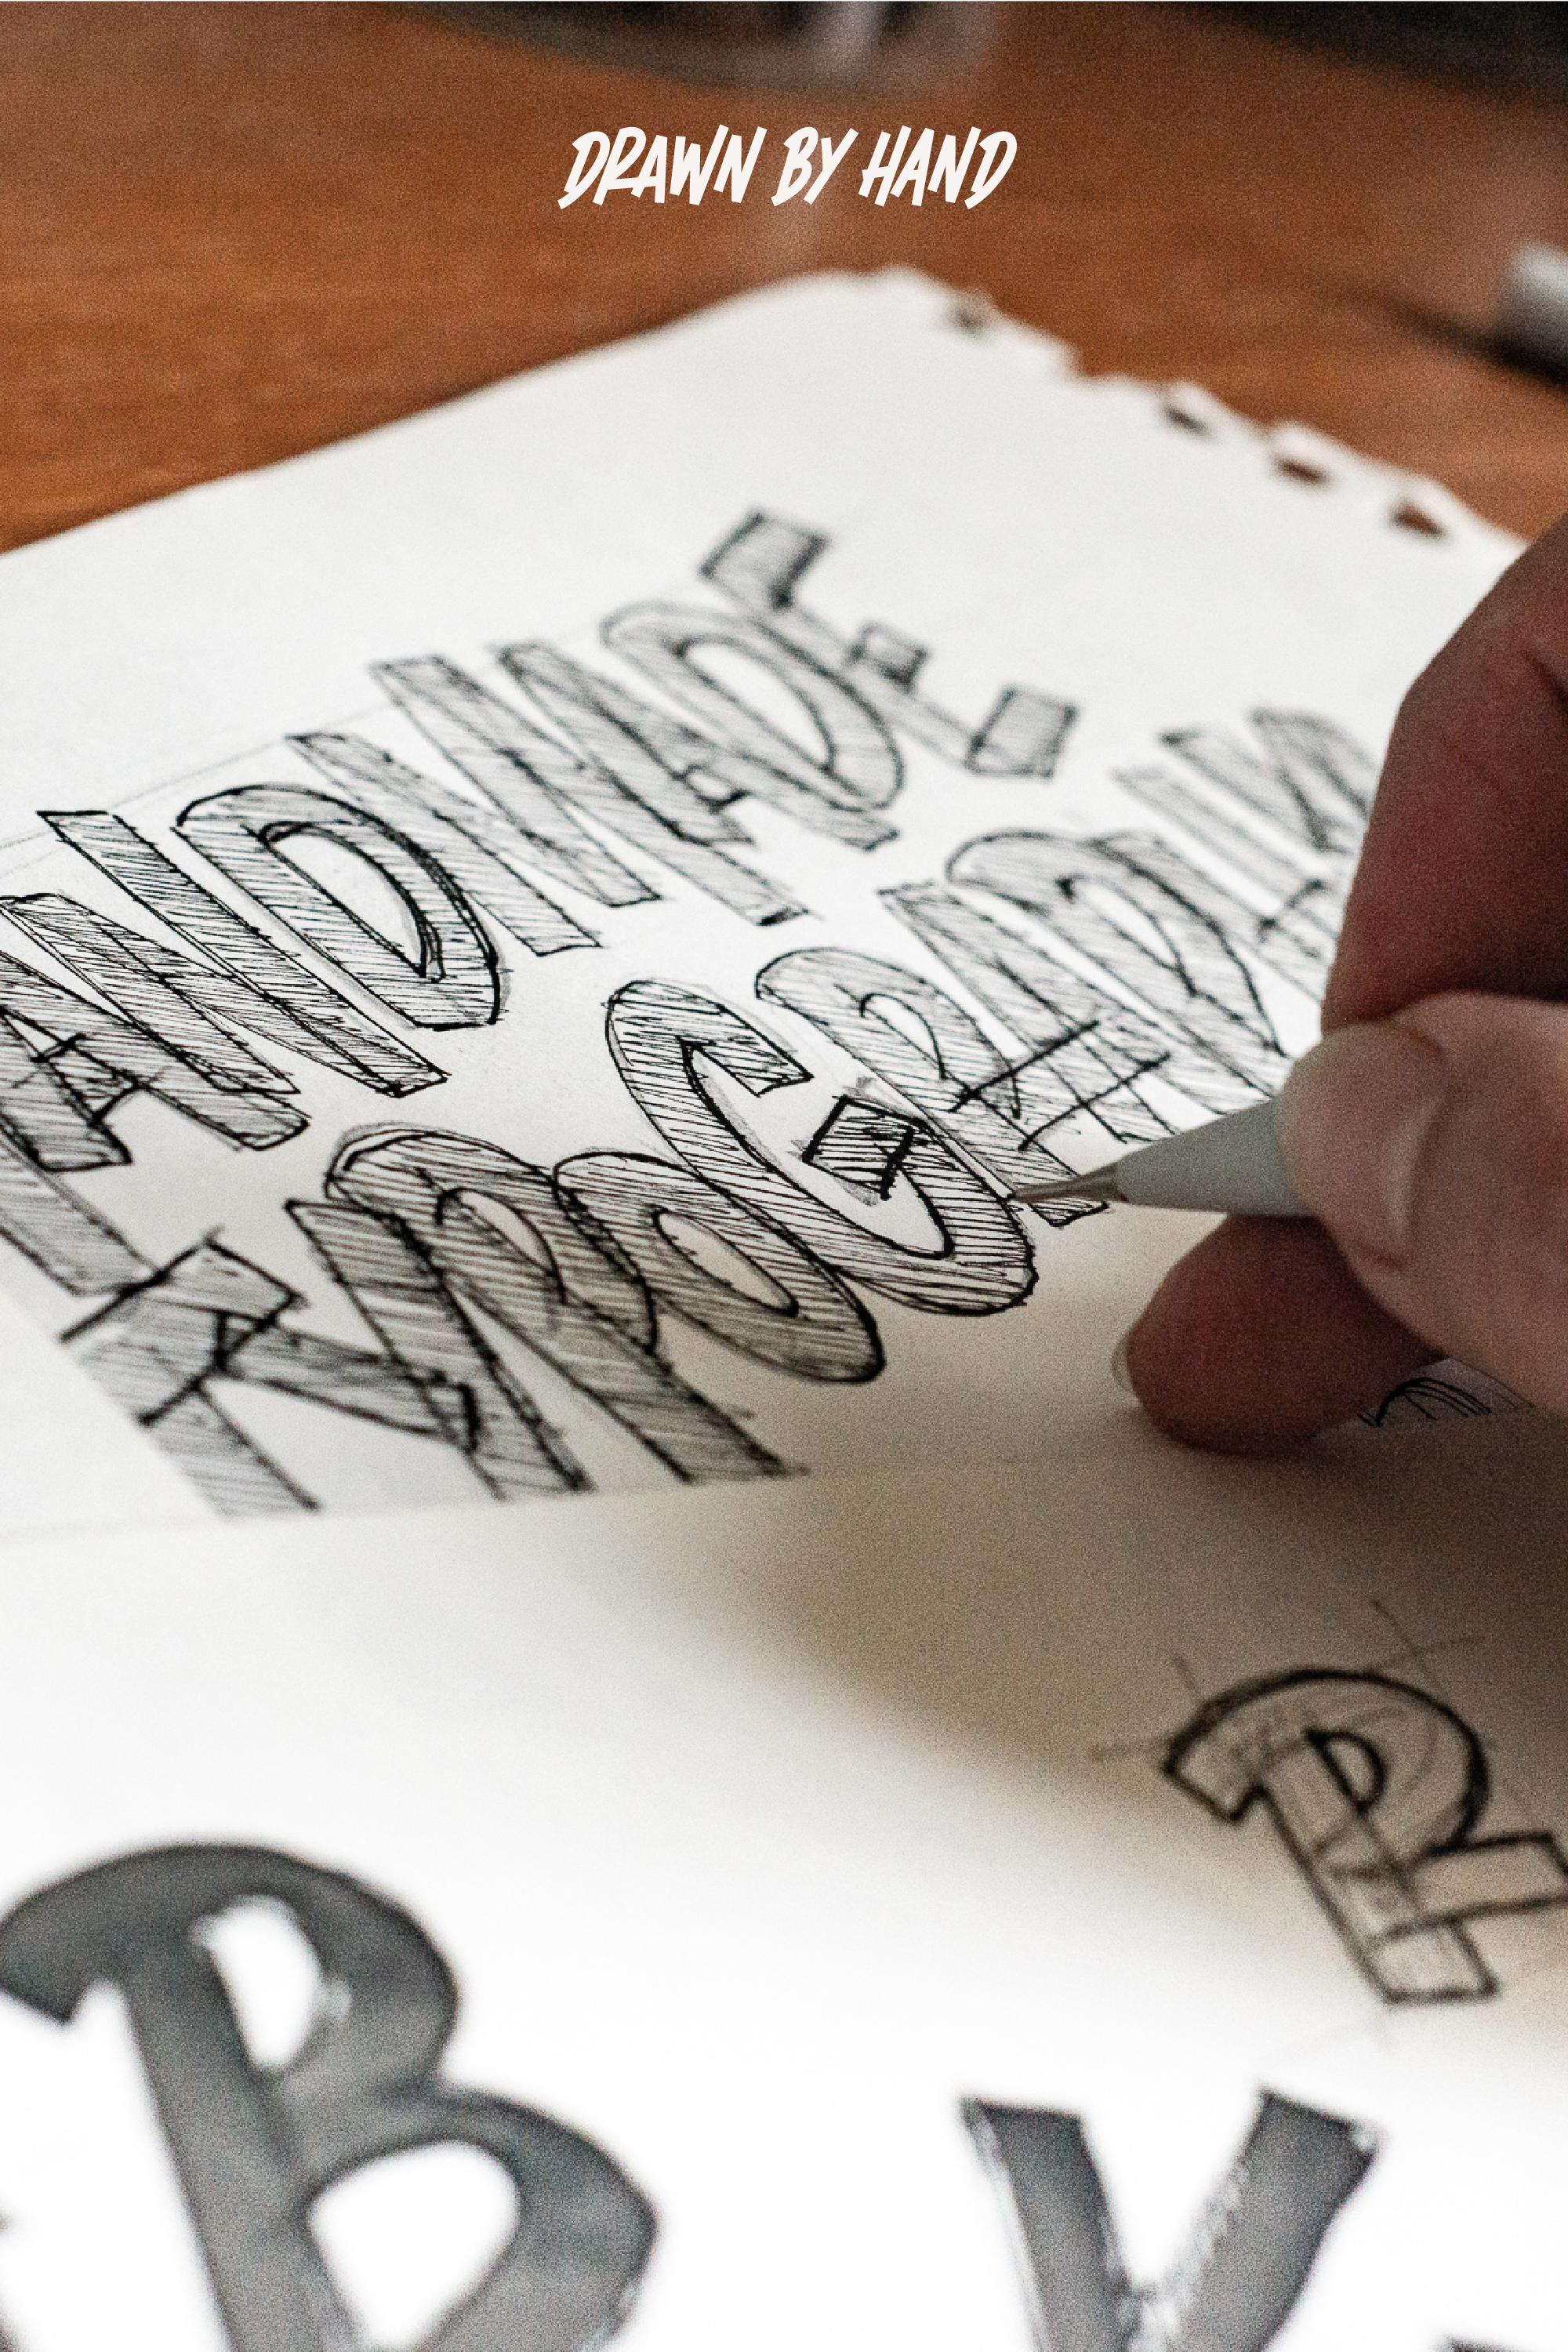 DRAWN BY HAND
ANDMADE
YPOGRAPH
R
B Y